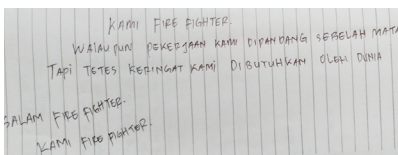 KAMI FIRE FIGHTER.
WALAUPUN PEKERJAAN KAMI DIPANDANG SEBELAH MATA
TAPI TETES KERINGAT KAMI DIBUTUHKAN OLEH DUNIA
SALAM FIRE FIGHTER.
KAMI FIRE FIGHTER.